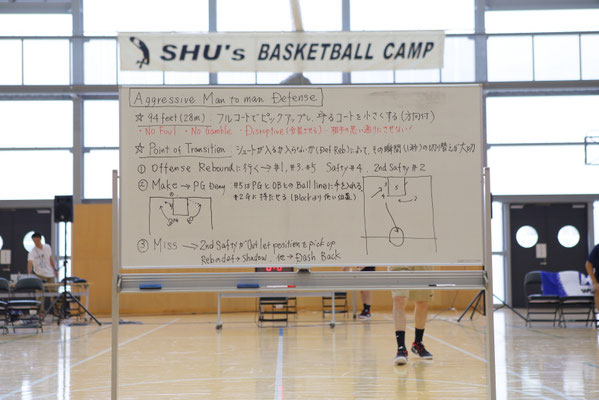 SHU's BASKETBALL CAMP
Aggressive Man to man Defense
☆ 94 feet (28m) フルコートでピックアップし、守るコートを小さくする (方向付け)
・No Foul ・No Gamble ・Disruptive (分裂させる) ・相手の思い通りにさせない!
☆ Point of Transition シュートが入るか入らないか (Def Reb) によって、その瞬間(1秒)の切り替えが大切
① Offense Reboundに行く→#1, #3, #5 Safty #4, 2nd Safty #2
② Make → PG Deny #5はPGとOBとのBall lineに手を入れる
#2Gに持たせる (Blockより低い位置)
③ Miss → 2nd SaftyがOut let positionをpick up
Rebounderへshadow, 他→Dash Back